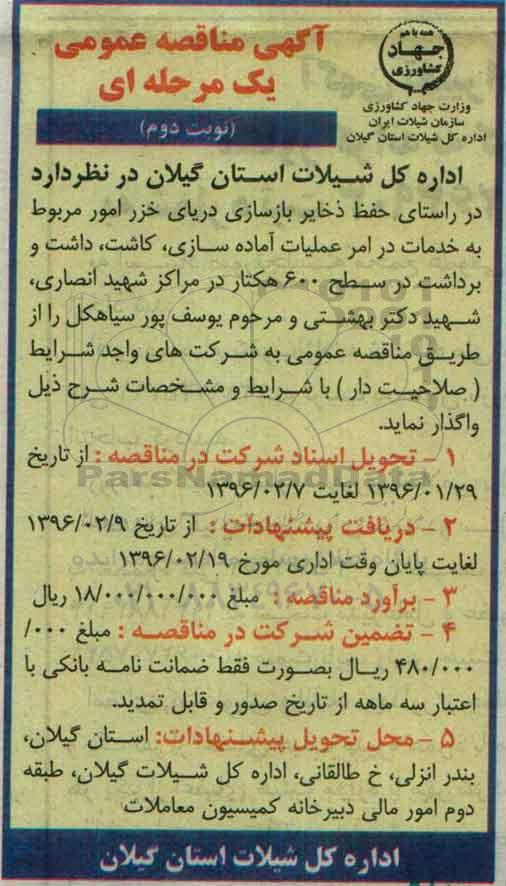 همه با هم
جهاد
کشاورزی
وزارت جهاد کشاورزی
سازمان شیلات ایران
اداره کل شیلات استان گیلان
آگهی مناقصه عمومی
یک مرحله ای
(نوبت دوم)
اداره کل شیلات استان گیلان در نظردارد
در راستای حفظ ذخایر بازسازی دریای خزر امور مربوط
به خدمات در امر عملیات آماده سازی، کاشت، داشت و
برداشت در سطح ۶۰۰ هکتار در مراکز شهید انصاری،
شهید دکتر بهشتی و مرحوم یوسف پور سیاهکل را از
طریق مناقصه عمومی به شرکت های واجد شرایط
( صلاحیت دار ) با شرایط و مشخصات شرح ذیل
واگذار نماید.
۱ - تحویل اسناد شرکت در مناقصه : از تاریخ
۱۳۹۶/۰۱/۲۹ لغایت ۱۳۹۶/۰۲/۷
۲ - دریافت پیشنهادات : از تاریخ ۱۳۹۶/۰۲/۹
لغایت پایان وقت اداری مورخ ۱۳۹۶/۰۲/۱۹
۳ - برآورد مناقصه : مبلغ ۱۸/۰۰۰/۰۰۰/۰۰۰ ریال
۴ - تضمین شرکت در مناقصه : مبلغ ۰۰۰/
۴۸۰/۰۰۰ ریال بصورت فقط ضمانت نامه بانکی با
اعتبار سه ماهه از تاریخ صدور و قابل تمدید.
۵ - محل تحویل پیشنهادات: استان گیلان،
بندر انزلی، خ طالقانی، اداره کل شیلات گیلان، طبقه
دوم امور مالی دبیرخانه کمیسیون معاملات
اداره کل شیلات استان گیلان
ParsNamadData